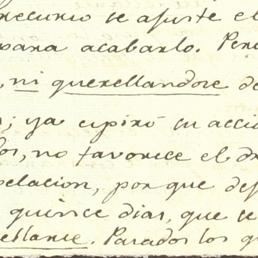 recurio se ajuste el
para acabarlo. Pero
, ni querellandose de
; ya espiró su acció
dos, no favorece el d
pelacion, porque des
quince dias, que se
ellarse. Parados los q